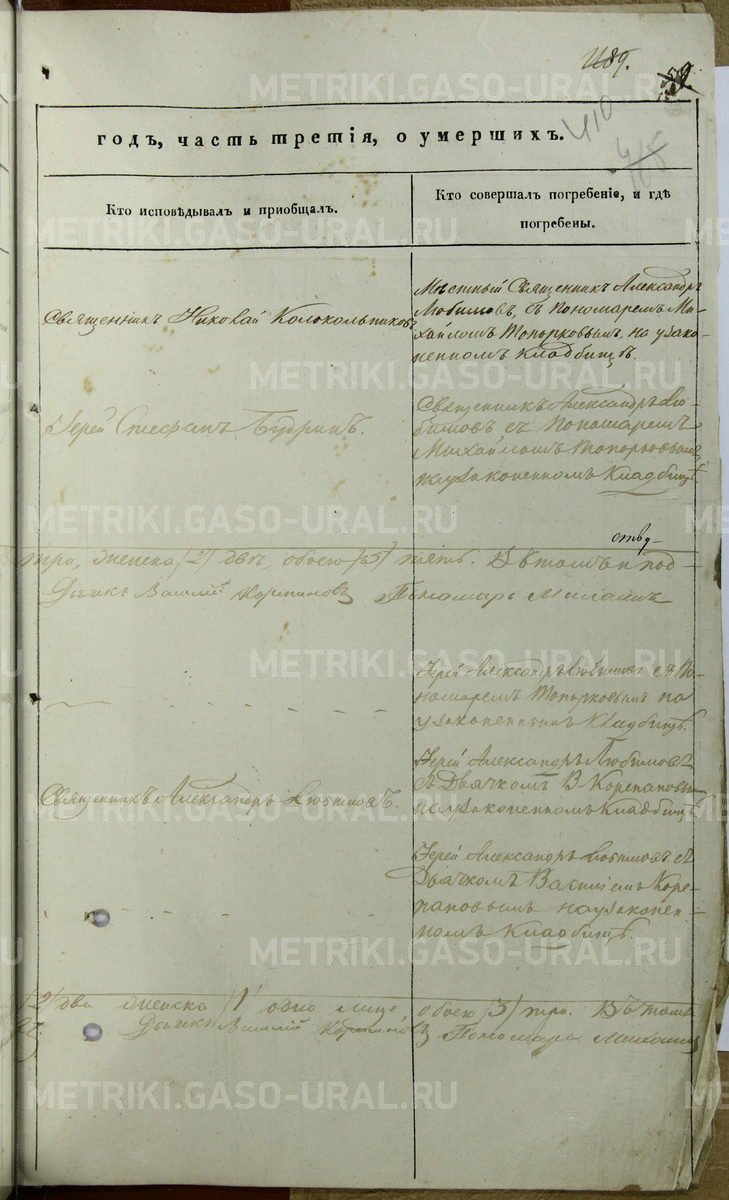 59.
годъ, часть третія, о умершихъ.
410
Кто исповѣдывалъ и приобщалъ.
Кто совершалъ погребеніе, и гдѣ
погребены.
Священникъ Николай Колокольников
Мѣстный Священникъ Александръ
Любимовъ, съ Пономаремъ Ми-
хайломъ Топорковымъ, на узако-
ненномъ Кладбищѣ.
Іерей Стефанъ Будринъ.
Священникъ Александръ Лю-
бимовъ съ Пономаремъ
Михайломъ Топорковымъ
на узаконенномъ Кладбищѣ
ству-
три, женска (2) двѣ, обоего (5) пять. Въ томъ и под-
Дьячекъ Василій Пономарь Михаилъ
Іерей Александръ Любимовъ съ По-
номаремъ Топорковымъ на
узаконенномъ Кладбищѣ.
Священникъ Александръ Любимовъ.
Іерей Александръ Любимовъ
съ Дьячкомъ В Корепановым
на узаконенномъ Кладбищѣ
Іерей Александръ Любимовъ съ
Дьячкомъ Василіемъ Коре-
пановымъ на узаконен-
номъ Кладбищѣ.
(2) два женска (1) одно лице обоего (3) три. Въ томъ
Дьячекъ Василій Пономарь Михаилъ
METRIKI.GASO-URAL.RU